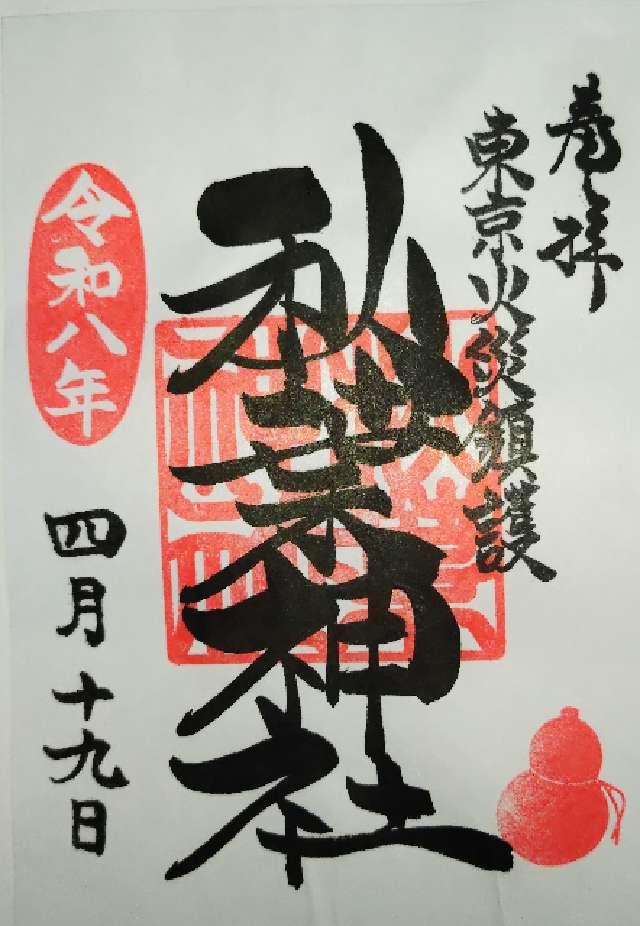 奉拝
東京火災鎮護
秋葉神社
令和八年
四月十九日